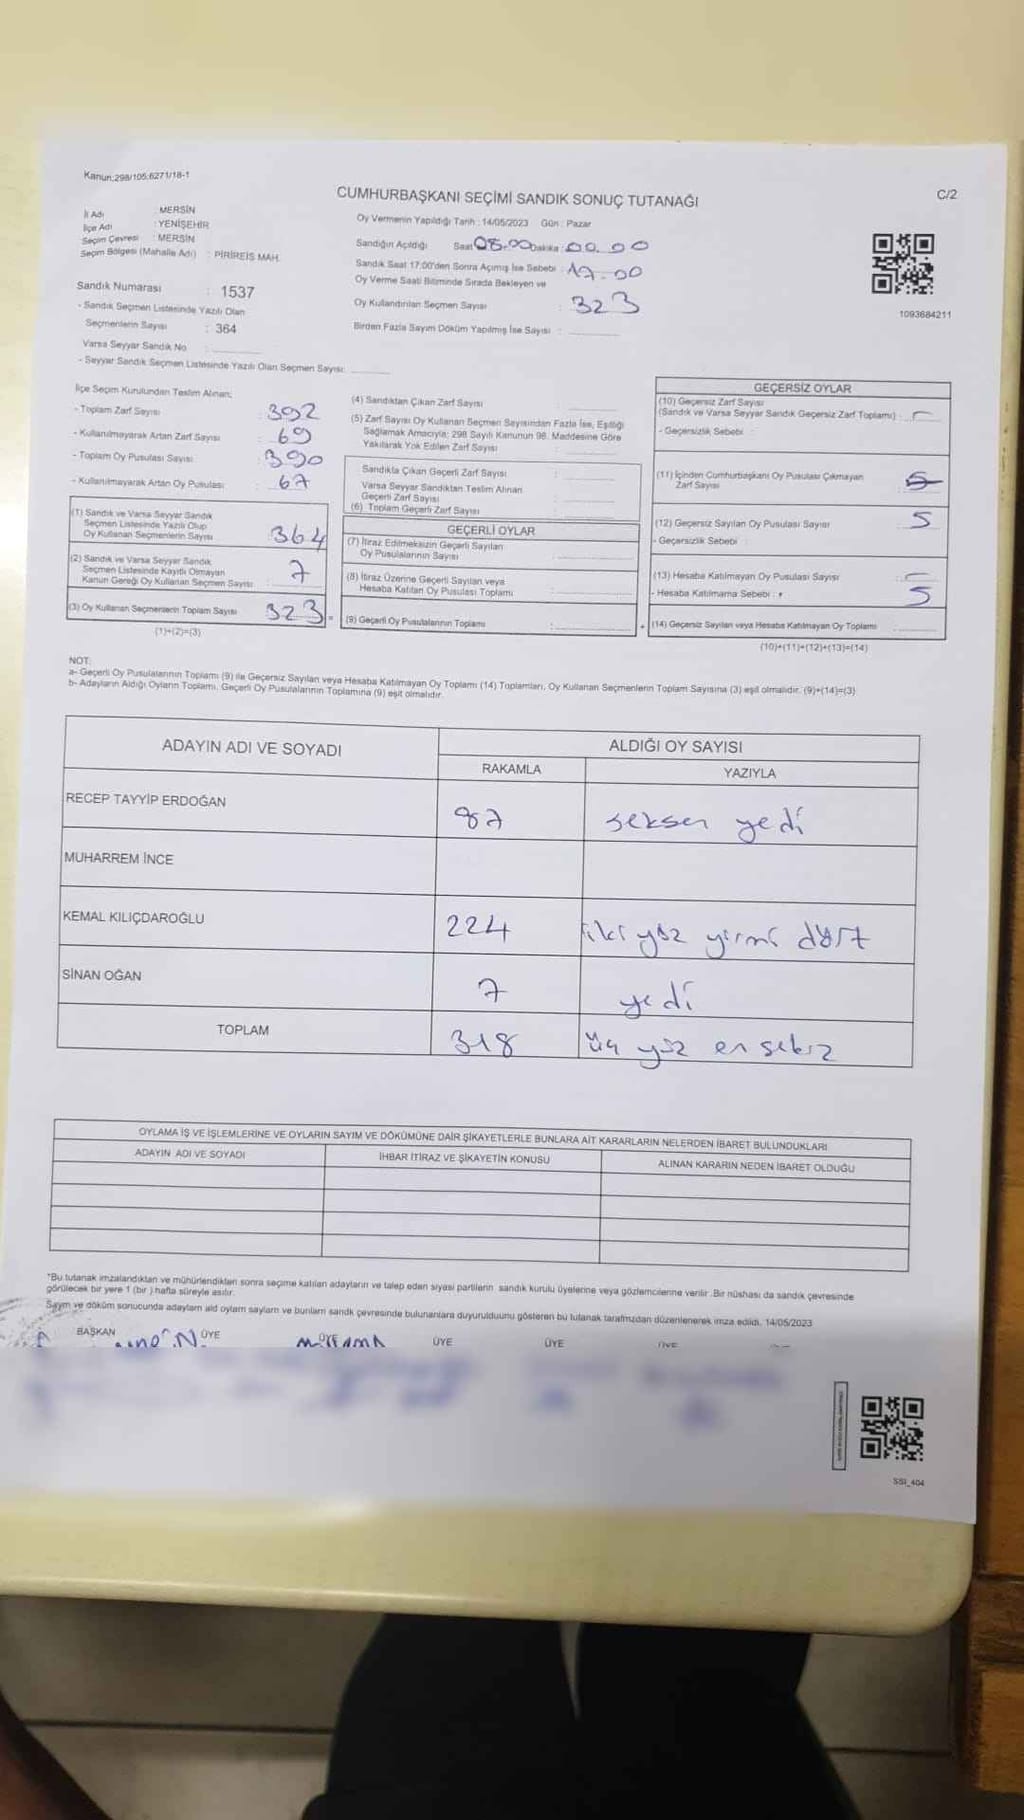 Kanun:298/105;6271/18-1
C/2
CUMHURBAŞKANI SEÇİMİ SANDIK SONUÇ TUTANAĞI
İli Adı : MERSİN
İlçe Adı : YENİŞEHİR
Seçim Çevresi : MERSİN
Seçim Bölgesi (Mahalle Adı) : PİRİREİS MAH.
Sandık Numarası : 1537
- Sandık Seçmen Listesinde Yazılı Olan
Seçmenlerin Sayısı : 364
Varsa Seyyar Sandık No :
- Seyyar Sandık Seçmen Listesinde Yazılı Olan Seçmen Sayısı:
Oy Vermenin Yapıldığı Tarih : 14/05/2023 Gün : Pazar
Sandığın Açıldığı Saat 08.00 Dakika : 00.00
Sandık Saat 17:00'den Sonra Açımış İse Sebebi : 17.00
Oy Verme Saati Bitiminde Sırada Bekleyen ve
Oy Kullandırılan Seçmen Sayısı : 323
Birden Fazla Sayım Döküm Yapılmış İse Sayısı :
1093684211
İlçe Seçim Kurulundan Teslim Alınan;
- Toplam Zarf Sayısı : 392
- Kullanılmayarak Artan Zarf Sayısı : 69
- Toplam Oy Pusulası Sayısı : 390
- Kullanılmayarak Artan Oy Pusulası : 67
(1) Sandık ve Varsa Seyyar Sandık
Seçmen Listesinde Yazılı Olup
Oy Kullanan Seçmenlerin Sayısı : 364
(2) Sandık ve Varsa Seyyar Sandık
Seçmen Listesinde Kayıtlı Olmayan
Kanun Gereği Oy Kullanan Seçmen Sayısı : 7
(3) Oy Kullanan Seçmenlerin Toplam Sayısı 323 =
(1)+(2)=(3)
(4) Sandıktan Çıkan Zarf Sayısı
(5) Zarf Sayısı Oy Kullanan Seçmen Sayısından Fazla İse, Eşitliği
Sağlamak Amacıyla; 298 Sayılı Kanunun 98. Maddesine Göre
Yakılarak Yok Edilen Zarf Sayısı :
Sandıkta Çıkan Geçerli Zarf Sayısı :
Varsa Seyyar Sandıktan Teslim Alınan
Geçerli Zarf Sayısı
(6) Toplam Geçerli Zarf Sayısı :
GEÇERLİ OYLAR
(7) İtiraz Edilmeksizin Geçerli Sayılan
Oy Pusulalarının Sayısı :
(8) İtiraz Üzerine Geçerli Sayılan veya
Hesaba Katılan Oy Pusulası Toplamı :
(9) Geçerli Oy Pusulalarının Toplamı : +
GEÇERSİZ OYLAR
(10) Geçersiz Zarf Sayısı
(Sandık ve Varsa Seyyar Sandık Geçersiz Zarf Toplamı) :
- Geçersizlik Sebebi :
(11) İçinden Cumhurbaşkanı Oy Pusulası Çıkmayan
Zarf Sayısı :
(12) Geçersiz Sayılan Oy Pusulası Sayısı : 5
- Geçersizlik Sebebi :
(13) Hesaba Katılmayan Oy Pusulası Sayısı :
- Hesaba Katılmama Sebebi : 5
(14) Geçersiz Sayılan veya Hesaba Katılmayan Oy Toplamı :
(10)+(11)+(12)+(13)=(14)
NOT:
a- Geçerli Oy Pusulalarının Toplamı (9) ile Geçersiz Sayılan veya Hesaba Katılmayan Oy Toplamı (14) Toplamları, Oy Kullanan Seçmenlerin Toplam Sayısına (3) eşit olmalıdır. (9)+(14)=(3)
b- Adayların Aldığı Oyların Toplamı, Geçerli Oy Pusulalarının Toplamına (9) eşit olmalıdır.
ADAYIN ADI VE SOYADI ALDIĞI OY SAYISI
RAKAMLA YAZIYLA
RECEP TAYYİP ERDOĞAN 87 seksen yedi
MUHARREM İNCE
KEMAL KILIÇDAROĞLU 224 iki yüz yirmi dört
SİNAN OĞAN 7 yedi
TOPLAM 318 üç yüz on sekiz
OYLAMA İŞ VE İŞLEMLERİNE VE OYLARIN SAYIM VE DÖKÜMÜNE DAİR ŞİKAYETLERLE BUNLARA AİT KARARLARIN NELERDEN İBARET BULUNDUKLARI
ADAYIN ADI VE SOYADI İHBAR İTİRAZ VE ŞİKAYETİN KONUSU ALINAN KARARIN NEDEN İBARET OLDUĞU
*Bu tutanak imzalandıktan ve mühürlendikten sonra seçime katılan adayların ve talep eden siyasi partilerin sandık kurulu üyelerine veya gözlemcilerine verilir. Bir nüshası da sandık çevresinde
görülecek bir yere 1 (bir ) hafta süreyle asılır.
Sayım ve döküm sonucunda adayların ald oyların sayların ve bunların sandk çevresinde bulunanlara duyurulduunu gösteren bu tutanak tarafmızdan düzenlenerek imza edildi. 14/05/2023
BAŞKAN ÜYE ÜYE ÜYE ÜYE ÜYE
SSI_404